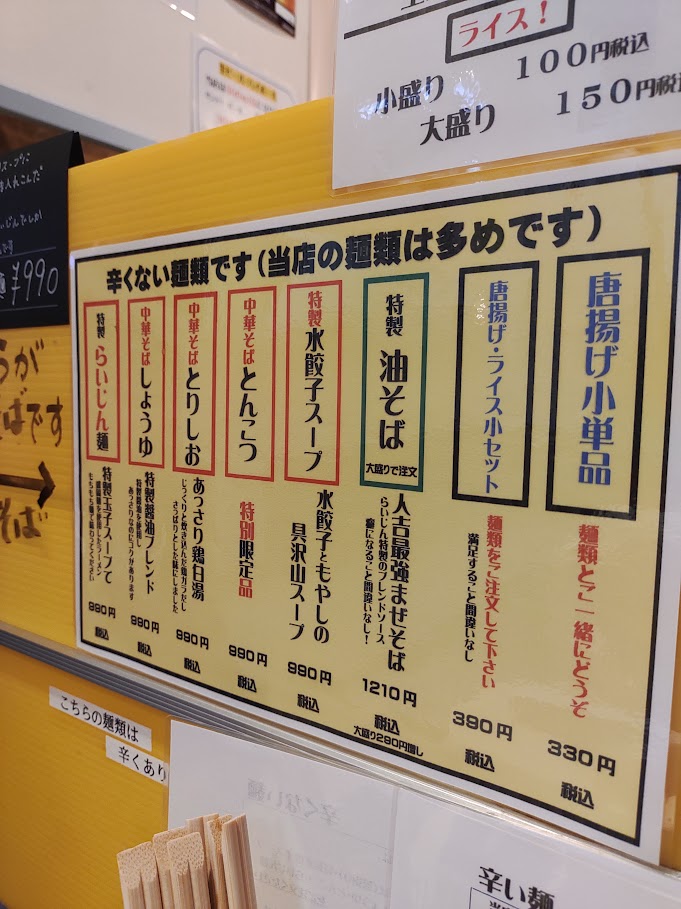 ライス！
小盛り 100円税込
大盛り 150円税込
¥990
辛くない麺類です(当店の麺類は多めです)
唐揚げ小単品
麺類とご一緒にどうぞ
330円
税込
唐揚げ・ライス小セット
麺類をご注文して下さい
満足すること間違いなし
390円
税込
特製 油そば
大盛りで注文
人吉最強まぜそば
らいじん特製のブレンドソース
癖になること間違いなし！
1210円
税込
大盛り290円増し
特製 水餃子スープ
水餃子ともやしの
具沢山スープ
990円
税込
中華そば とんこつ
特別限定品
990円
税込
中華そば とりしお
あっさり鶏白湯
じっくりと炊き込んだ鶏ガラだし
さっぱりとした味にしました
990円
税込
中華そば しょうゆ
特製醤油ブレンド
特製醤油を使用し
あっさりなのにコクがあります
990円
税込
特製 らいじん麺
特製玉子スープで
もちもち麺を味わってください
990円
税込
そば
こちらの麺類は
辛くあり
辛い麺